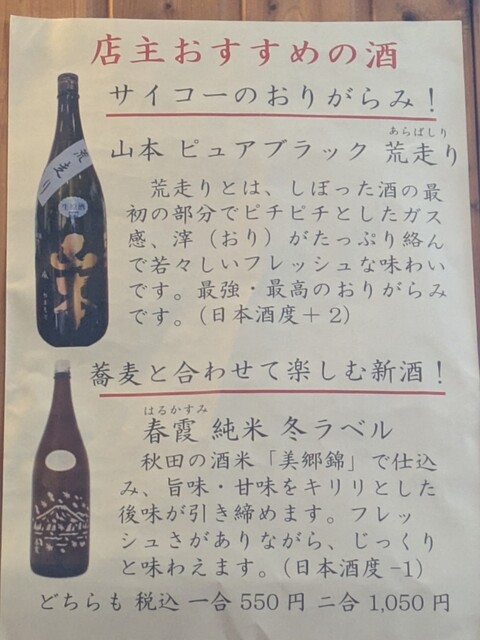 店主おすすめの酒
サイコーのおりがらみ！
あらばしり
山本 ピュアブラック 荒走り
荒走りとは、しぼった酒の最
初の部分でピチピチとしたガス
感、滓（おり）がたっぷり絡ん
で若々しいフレッシュな味わい
です。最強・最高のおりがらみ
です。（日本酒度＋2）
荒走り
生原酒
山本
蕎麦と合わせて楽しむ新酒！
はるかすみ
春霞 純米 冬ラベル
秋田の酒米「美郷錦」で仕込
み、旨味・甘味をキリリとした
後味が引き締めます。フレッ
シュさがありながら、じっくり
と味わえます。（日本酒度 −1）
どちらも 税込 一合 550 円 二合 1,050 円